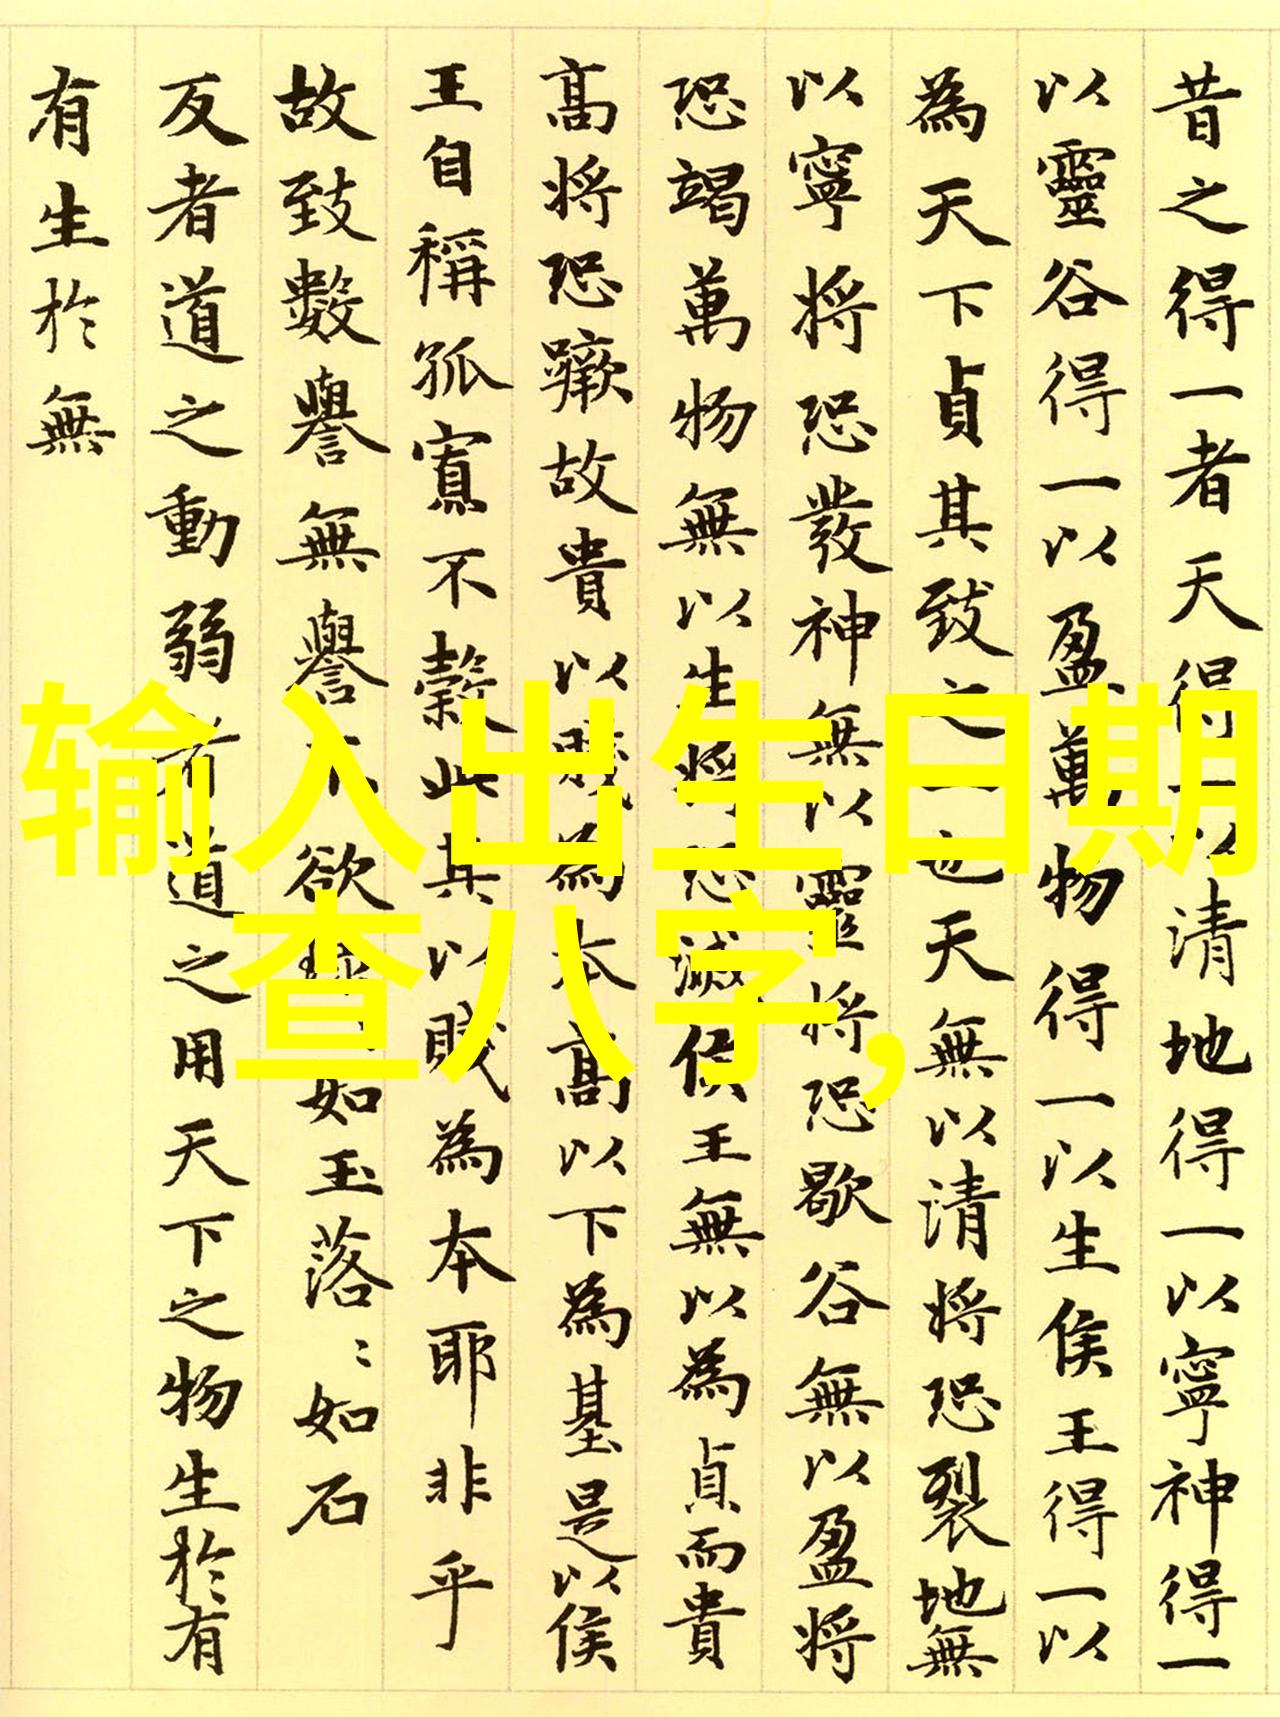 昔之得一者天得一以清地得一以寧神得一
以靈谷得一以盈萬物得一以生侯王得一以
為天下貞其致之一也天無以清將恐裂地無
以寧將恐發神無以靈將恐歇谷無以盈將
恐竭萬物無以生將恐滅侯王無以為貞而貴
高將恐蹶故貴以賤為本高以下為基是以侯
王自稱孤寡不穀此其以賤為本耶非乎
故致數譽無譽不欲如玉落〻如石
反者道之動弱者道之用天下之物生於有
有生於無
输入出生日期
查八字,